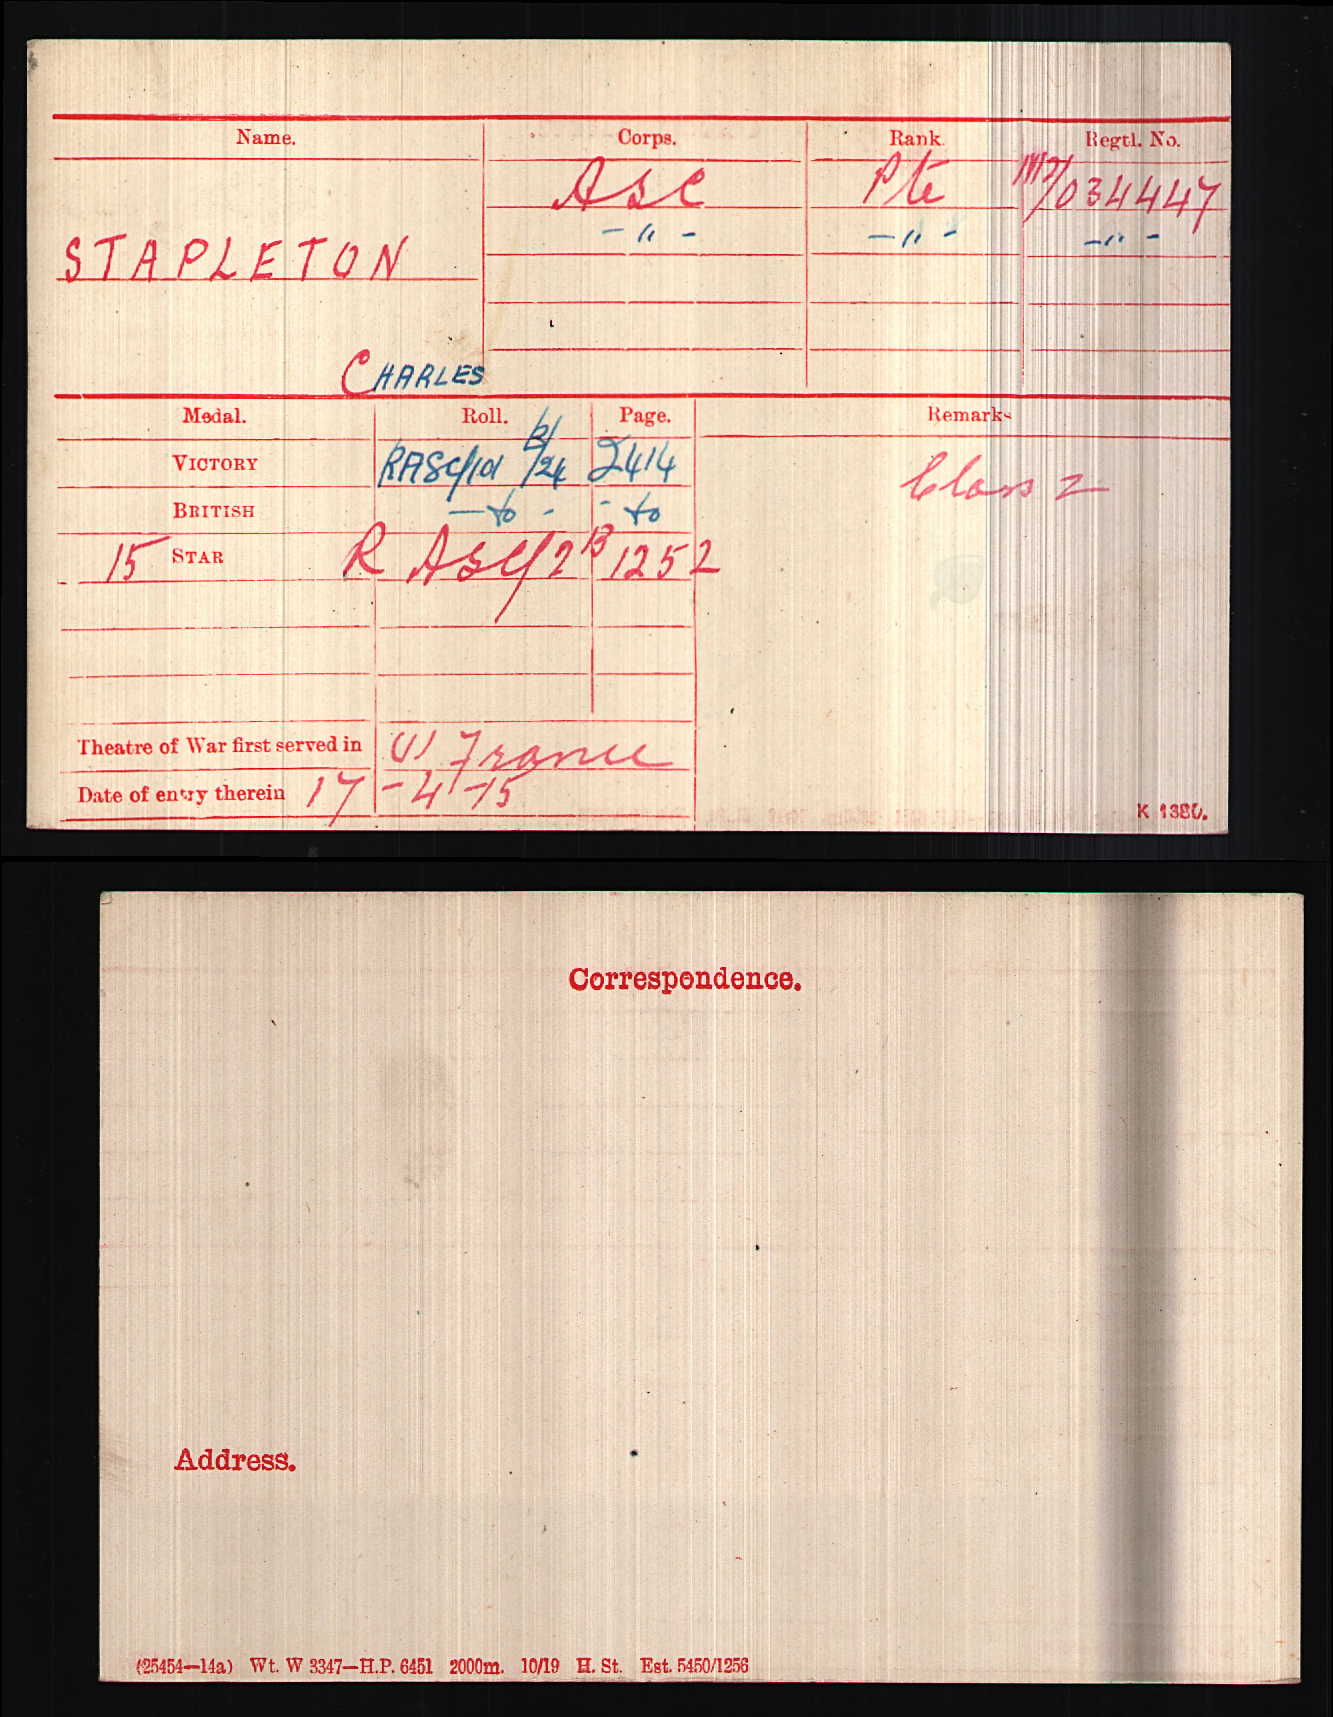 Name. Corps. Rank. Regtl. No.
ASC Pte M2/034447
-"- -"- -"-
STAPLETON
CHARLES
Medal. Roll. Page. Remarks
VICTORY RASC/101 B/24 2414
Class 2
BRITISH -do- -do
15 STAR R ASC/2B 1252
Theatre of War first served in (1) France
Date of entry therein 17-4-15
K 1380.
Correspondence.
Address.
(25454—14a) Wt. W 3347—H.P. 6451 2000m. 10/19 H. St. Est. 5450/1256